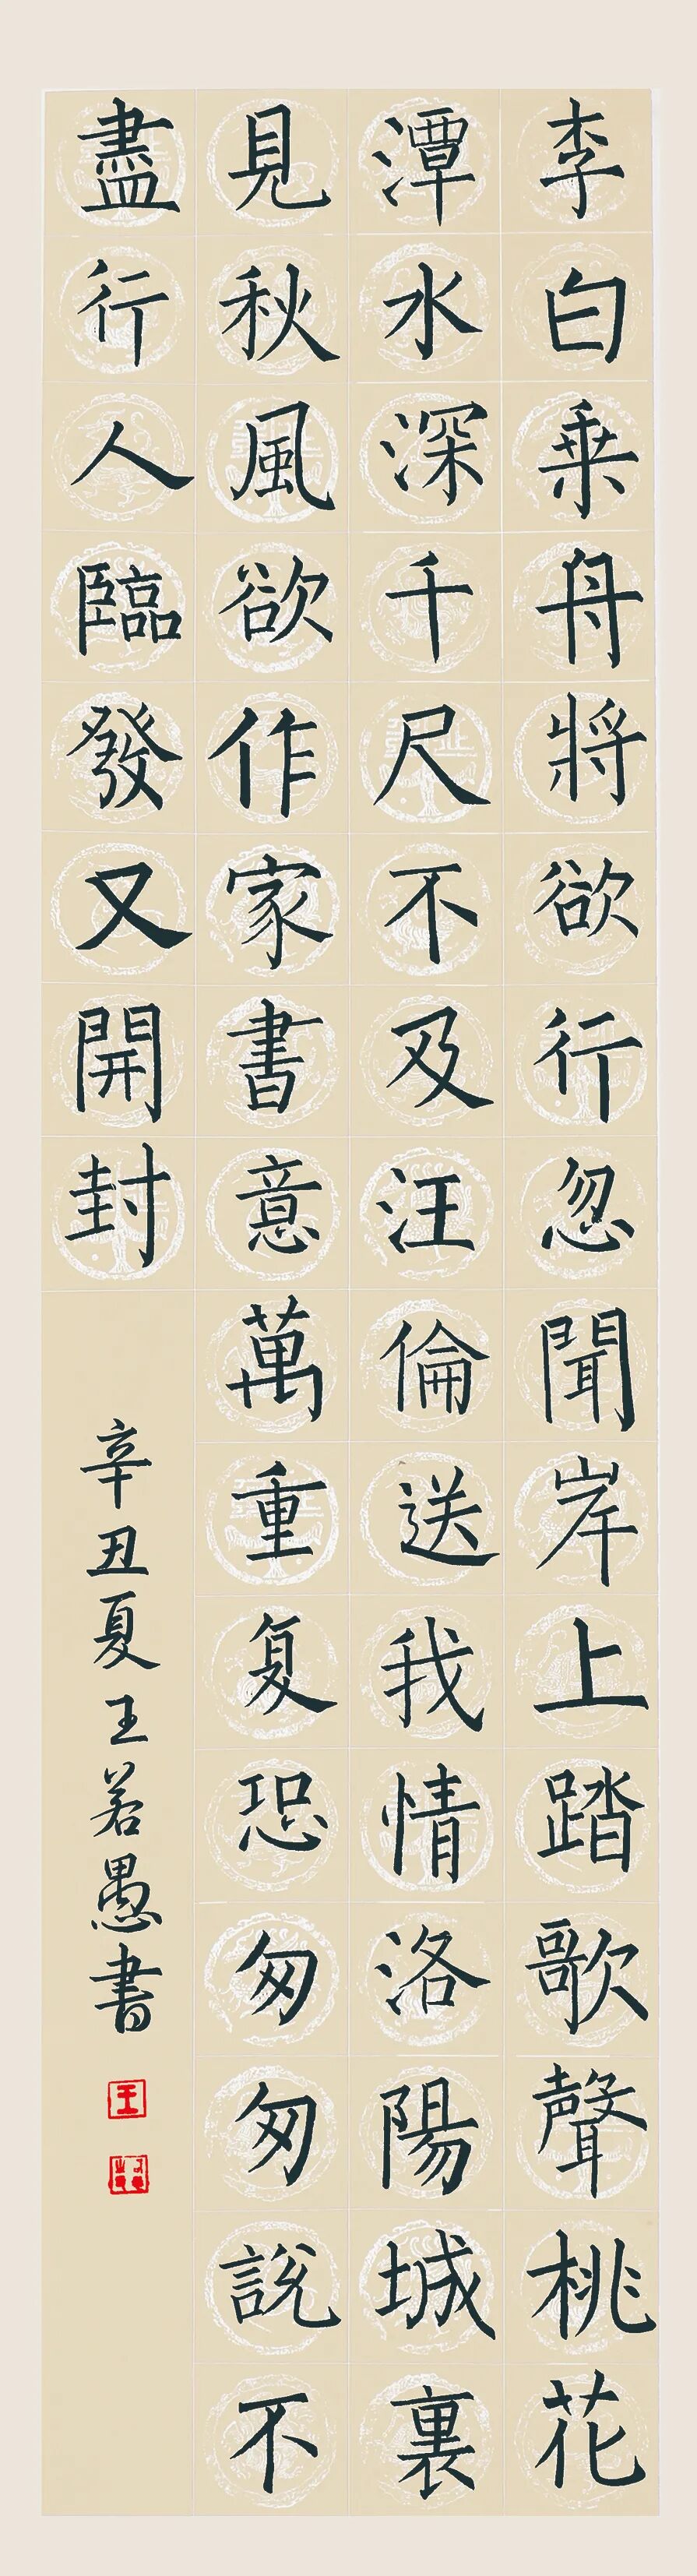 李白乗舟將欲行忽聞岸上踏歌聲桃花
潭水深千尺不及汪倫送我情洛陽城裏
見秋風欲作家書意萬重复恐匆匆說不
盡行人臨發又開封
辛丑夏王若愚書
王